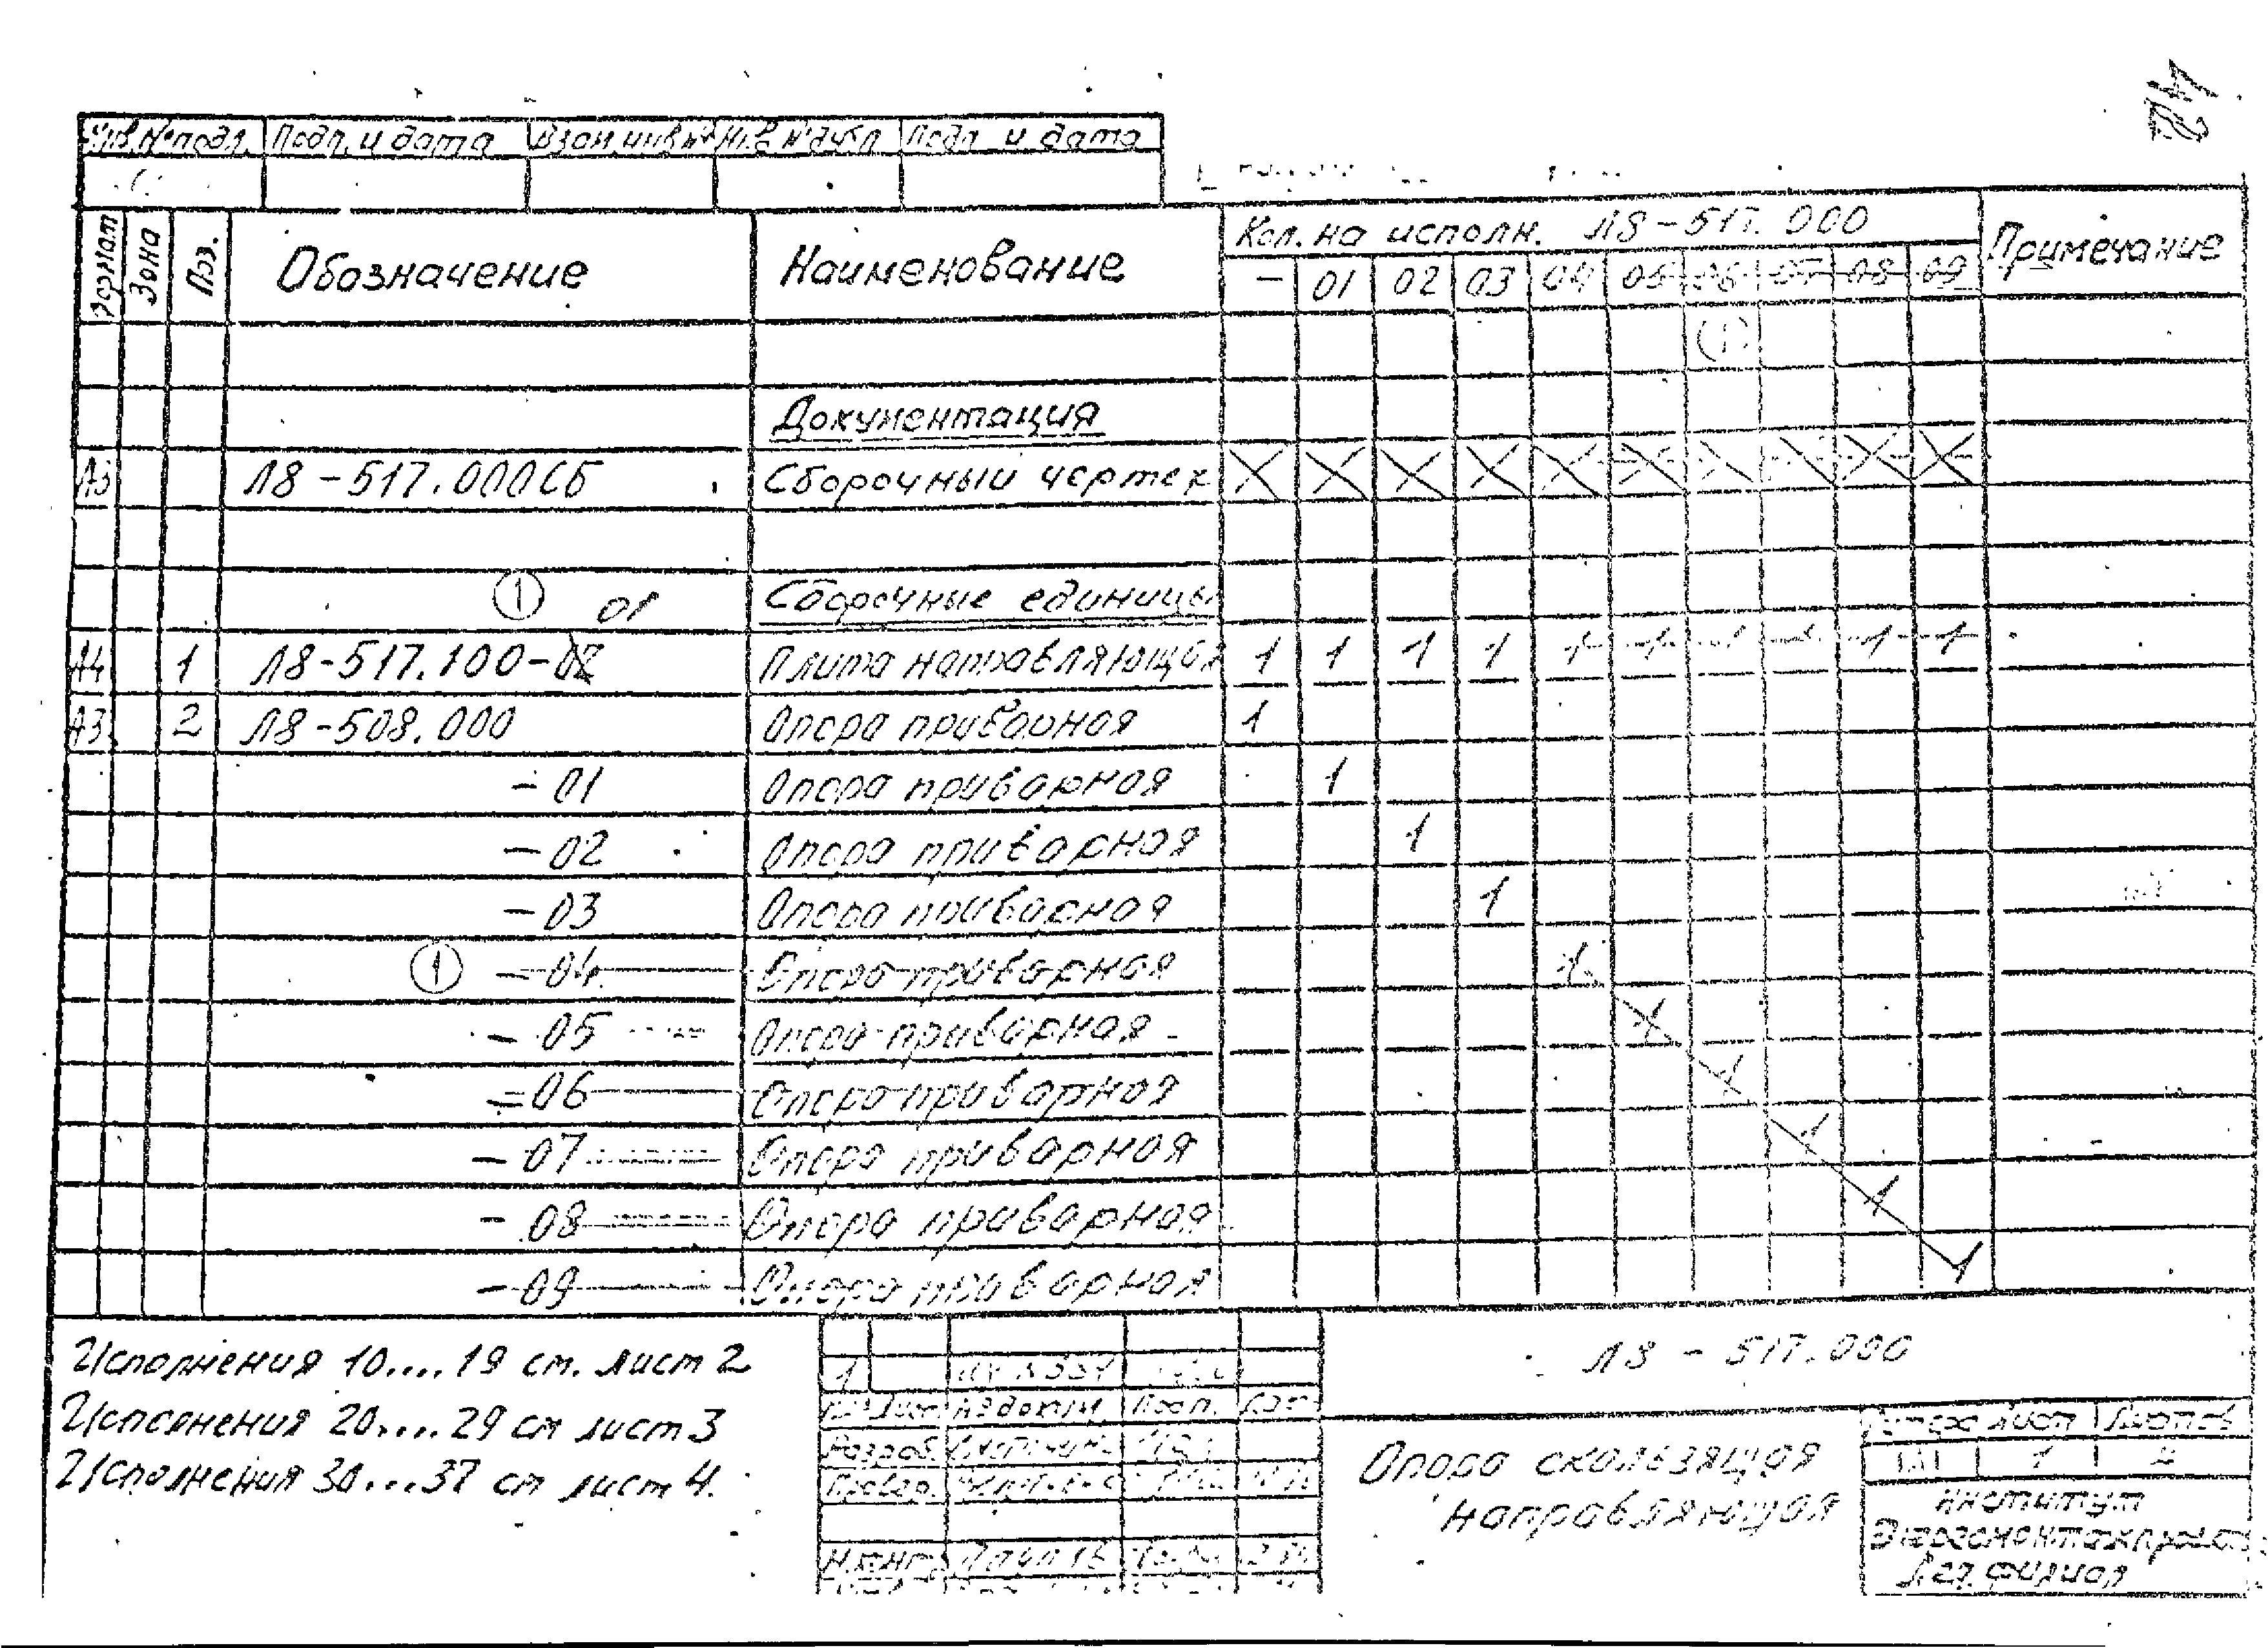 24
Инв.№подл. Подп. и дата Взам.инв.№ Инв №дубл Подп и дата
Формат Зона Поз. Обозначение Наименование Кол. на исполн. Л8-517.000 Примечание
- 01 02 03 04 05 06 07 08 09
1
Документация
А3 Л8-517.000СБ Сборочный чертеж X X X X X X X X X X
1 01 Сборочные единицы
А4 1 Л8-517.100-02 Плита направляющая 1 1 1 1 1 1 1 1 1 1
А3 2 Л8-508.000 Опора приварная 1
-01 Опора приварная 1
-02 Опора приварная 1
-03 Опора приварная 1
1 -04 Опора приварная 1
-05 Опора приварная 1
-06 Опора приварная 1
-07 Опора приварная 1
-08 Опора приварная 1
-09 Опора приварная 1
Исполнения 10....19 см. лист 2
Исполнения 20....29 см лист 3
Исполнения 30...37 см лист 4.
1
Лист №докум. Подп. Дат
Разраб.
Провер.
Н.контр
Л8-517.000
Опора скользящая
направляющая
Лист Листов
1
Институт
Энергомонтажпроект
Лен. филиал